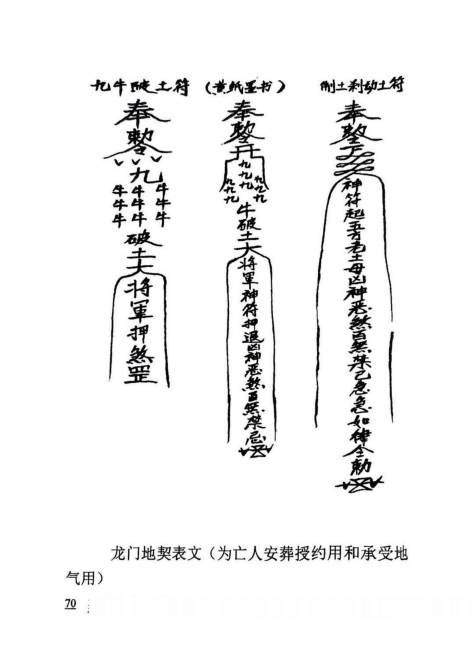 九牛破土符
(黄纸墨书)
制土刹动土符
奉
勅令
九
牛牛牛
牛牛牛
牛牛牛
破土大
将軍押煞罡
奉
勅
九
九九九
九九九
九九
牛破土大
将軍神符押退凶神恶煞百無禁忌
奉
勅
神符起五方石土母凶神恶煞百無禁己急急如律令勅
龙门地契表文（为亡人安葬授约用和承受地
气用）
70